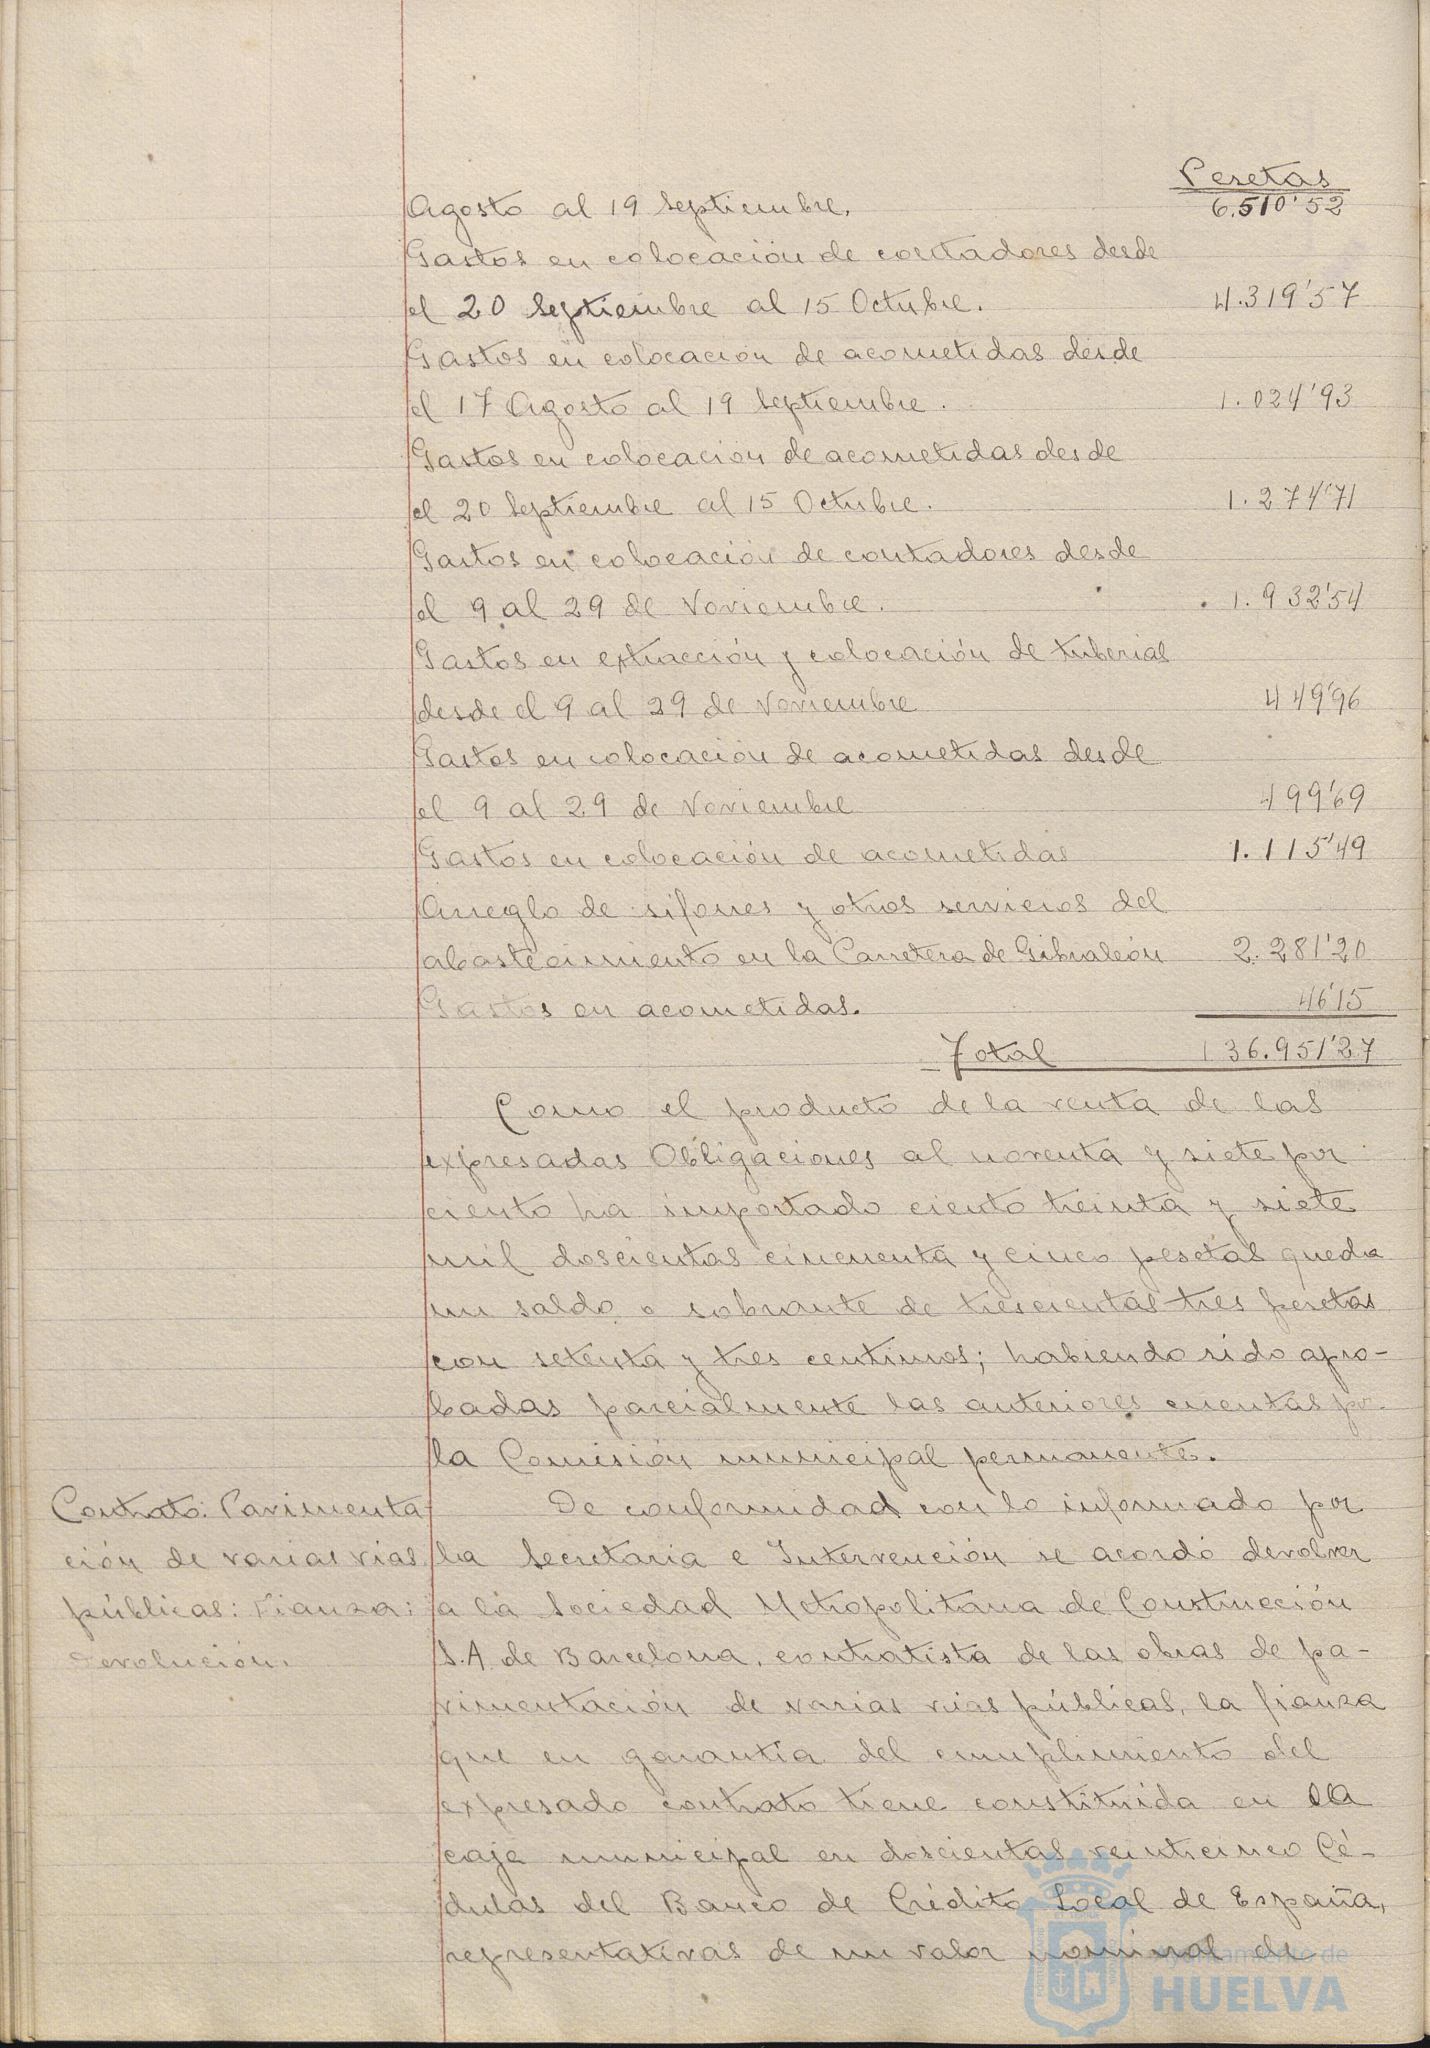 Pesetas
Agosto al 19 Septiembre. 6.510'52
Gastos en colocación de contadores desde
el 20 Septiembre al 15 Octubre. 4.319'57
Gastos en colocación de acometidas desde
el 17 Agosto al 19 Septiembre. 1.024'93
Gastos en colocación de acometidas desde
el 20 Septiembre al 15 Octubre. 1.274'71
Gastos en colocación de contadores desde
el 9 al 29 de Noviembre. 1.932'54
Gastos en extracción y colocación de tuberias
desde el 9 al 29 de Noviembre 449'96
Gastos en colocación de acometidas desde
el 9 al 29 de Noviembre 499'69
Gastos en colocación de acometidas 1.115'49
Arreglo de sifones y otros servicios del
abastecimiento en la Carretera de Gibraleón 2.281'20
Gastos en acometidas. 46'15
Total 136.951'27
Como el producto de la venta de las
expresadas Obligaciones al noventa y siete por
ciento ha importado ciento treinta y siete
mil doscientas cincuenta y cinco pesetas queda
un saldo o sobrante de trescientas tres pesetas
con setenta y tres centimos; habiendo sido apro-
badas parcialmente las anteriores cuentas por
la Comisión municipal permanente.
Contrato: Pavimenta
ción de varias vias
públicas: Fianza:
Devolución.
De conformidad con lo informado por
la Secretaria e Intervención se acordó devolver
a la Sociedad Metropolitana de Construcción
S.A. de Barcelona, contratista de las obras de pa-
vimentación de varias vias públicas, la fianza
que en garantía del cumplimiento del
expresado contrato tiene constituida en la
caja municipal en doscientas veinticinco Cé-
dulas del Banco de Crédito Local de España,
representativas de un valor nominal de
Ayuntamiento de
HUELVA